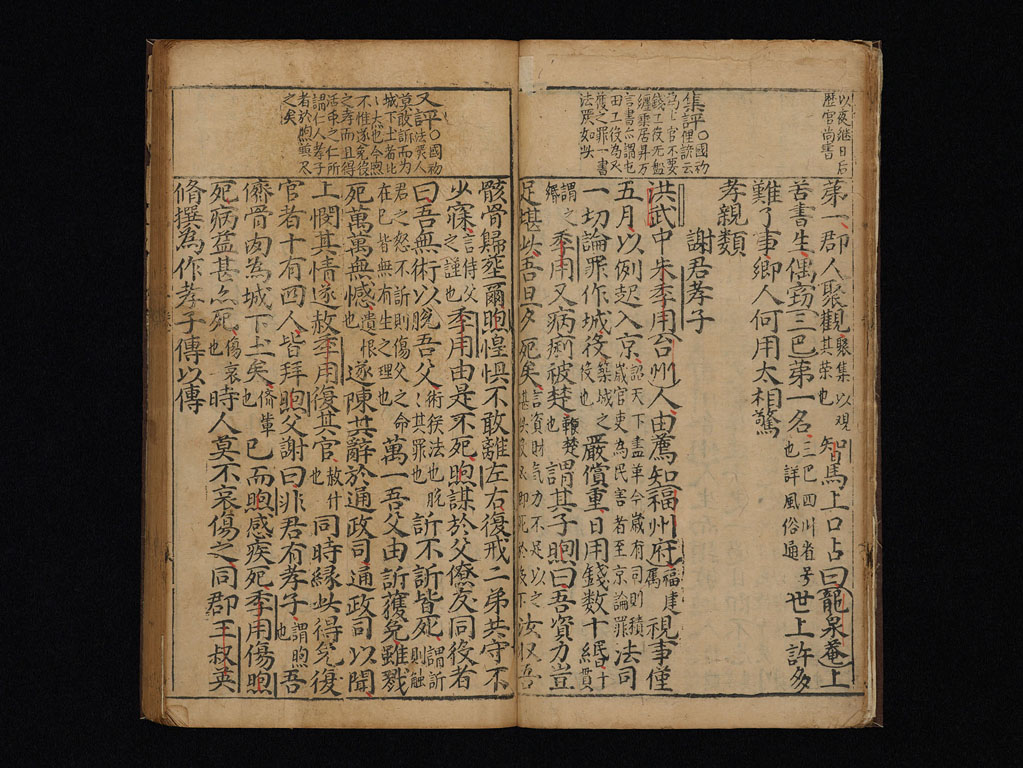 以夜繼日后
歷官尚書
第一郡人聚觀聚集以觀其榮也知馬上口占曰龍泉菴上
苦書生偶竊三巴第一名三巴四川省号也詳風俗通世上許多
難了事鄉人何用太相驚
孝親類
謝君孝子
集評○國初
錢工役无盤
田工役為又
法嚴如此
洪武中朱季用台州人由薦知福州府屬福建視事僅
五月以例起入京詔天下盡革今歲有司則積歲官吏為民害者至京論罪法司
一切論罪作城役築城之役也嚴償重日用錢數十緡日十貫
謂之緡季用又病痢被楚鞭楚也謂其子煦曰吾資力豈
足堪此吾旦夕死矣言資財氣力不足以堪此役必即死於役下汝収吾
又評○國初
莫敢訢而為
城下土者比
大也今煦
不惟遂免役
之孝而且得
活衆之仁所
謂仁人孝子
者於煦
之矣
骸骨歸塟爾煦惶懼不敢離左右復戒二弟共守不
少寐言侍父之謹也季用由是不死煦謀於父僚友同役者
曰吾無術以脫吾父術猴法也脫其罪也訢不訢皆死謂訢則触
君之怒不訢則傷父之命在己皆無有生之理也萬一吾父由訢獲免雖戮
死萬萬無憾遺恨也遂陳其辭於通政司通政司以聞
上憫其情遂赦季用復其官赦什也同時緣此得免復
官者十有四人皆拜煦父謝曰非君有孝子謂煦也吾
儕骨肉為城下土矣儕輩也已而煦感疾死季用傷煦
死病益甚亦死傷哀也時人莫不哀傷之同郡王叔英
脩撰為作孝子傳以傳